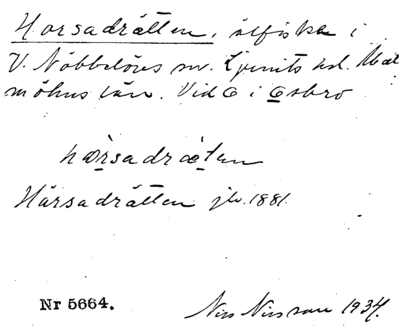 Horsadrätten, ålfiske i
V. Nöbbelövs sn. Ljunits hd. Mal
möhus län. Vid C i Esbro
hœrsadrœten
Hårsadrätten jb. 1881.
Nr 5664.
Nils Nilsson 1934.